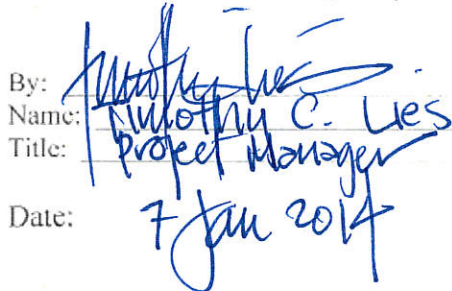 By:
Name: Timothy C. Lies
Title: Project Manager
Date: 7 Jan 2014